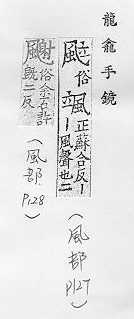 龍龕手鏡
颩俗颯正蘇合反丨
丨風聲也二
(風部 P127)
俗余石許
旣二反
(風部 P128)